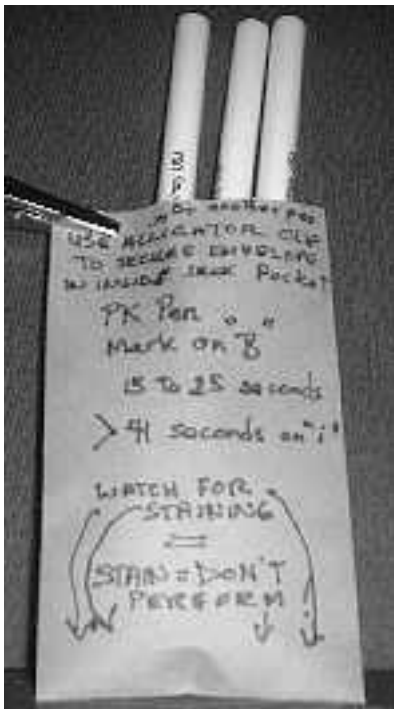 USE ALLIGATOR CLIP
TO SECURE ENVELOPE
IN INSIDE Pocket
PK Pen " "
Mark on B
15 To 25 seconds
> 41 seconds on "i"
WATCH FOR
STAINING
=
STAIN = DON'T
PERFORM